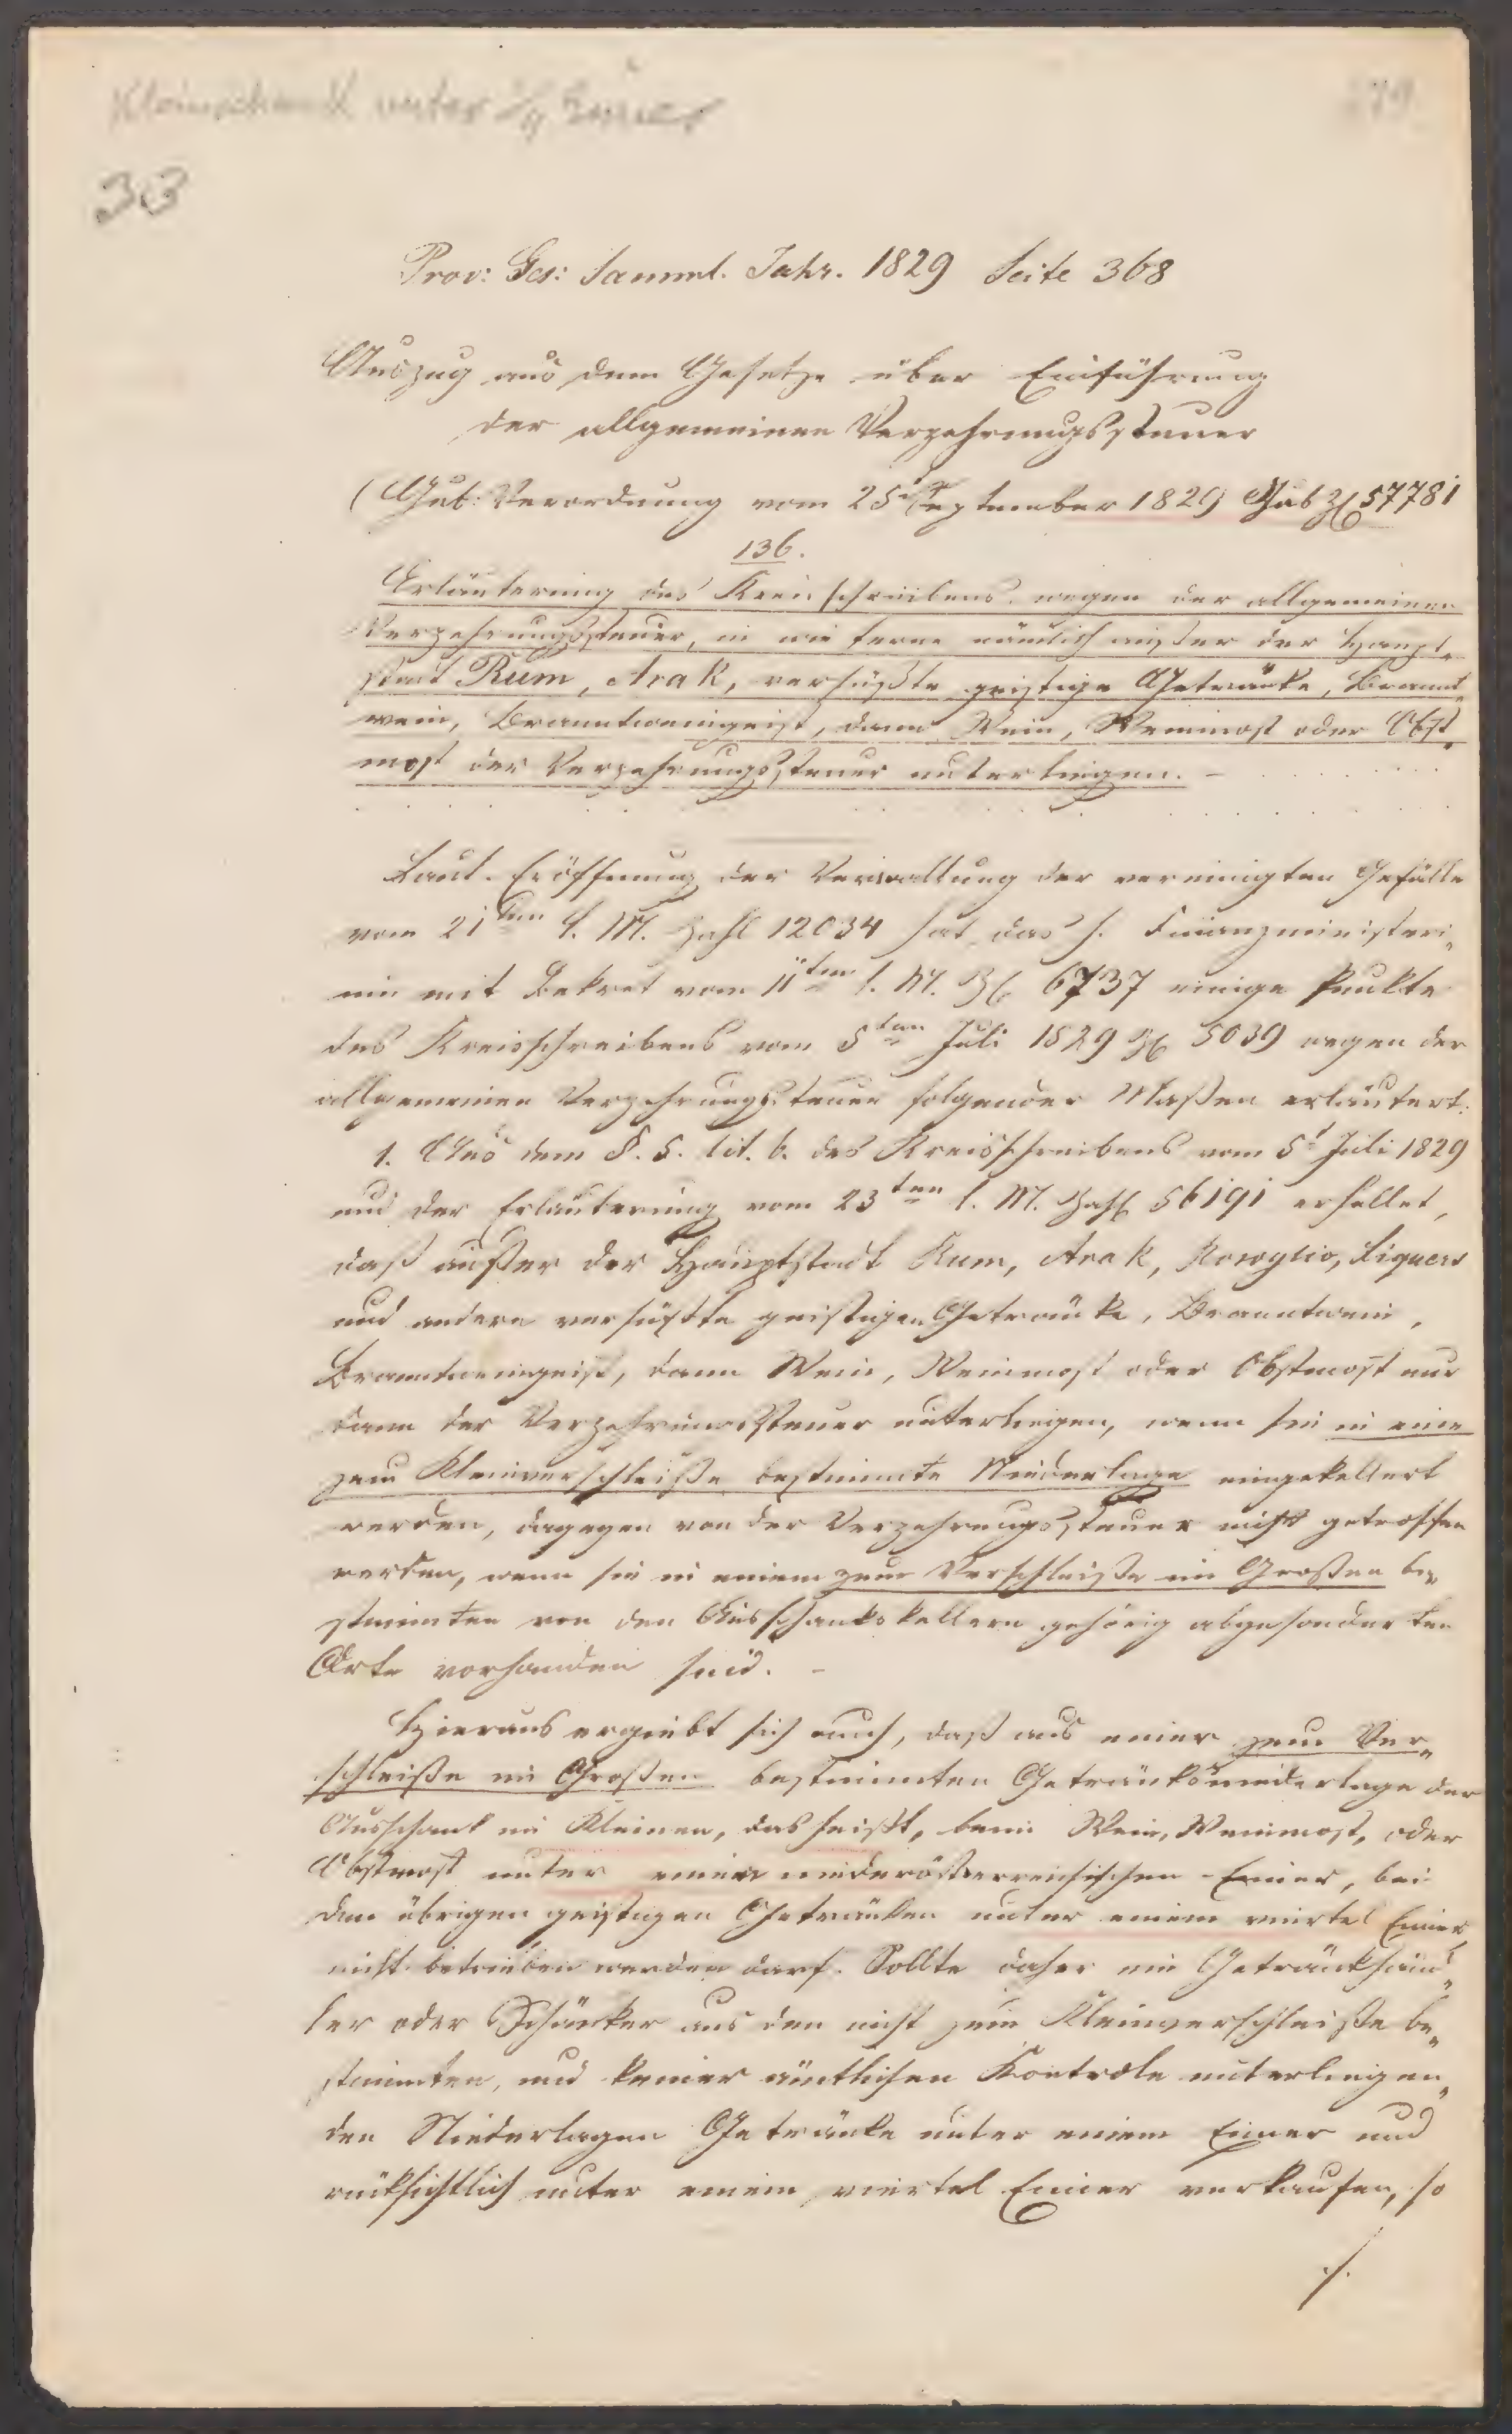 Kleinschank unter 1/4 Eimer
33
Prov: Ges: Samml. Jahr. 1829 Seite 368
Auszug aus dem Gesetze über Einführung
der allgemeinen Verzehrungssteuer
(Gub: Verordnung vom 25t September 1829 Gub Zl 57781
136.
Erläuterung des Kreisschreibens wegen der allgemeinen
Verzehrungssteuer, in wie ferne nämlich außer der Haupt„
stadt Rum, Arak, versüßte geistige Getränke, Brannt„
wein, Branntweingeist, dann Wein, Weinmost oder Obst„
most der Verzehrungssteuer unterliegen. –
Laut Eröffnung der Verwaltung der vereinigten Gefälle
vom 21ten l. M. Zahl 12034 hat das h. Finanzministeri„
um mit Dekret vom 11ten l. M. Zl 6737 einige Punkte
des Kreisschreibens vom 5ten Juli 1829 Zl 5039 wegen der
allgemeinen Verzehrungssteuer folgender Maßen erläutert:
1. Aus dem §. 5. lit. b. des Kreisschreibens vom 5t Juli 1829
und der Erläuterung vom 23ten l. M. Zahl 56191 erhellet,
daß außer der Hauptstadt Rum, Arak, Rosoglio, Liquers
und andere versüßte geistigen Getränke, Branntwein,
Branntweingeist, dann Wein, Weinmost oder Obstmost nur
dann der Verzehrungssteuer unterliegen, wenn sie in eine
zum Kleinverschleiße bestimmte Niederlage eingekellert
werden, dagegen von der Verzehrungssteuer nicht getroffen
werden, wenn sie in einem zum Verschleiße im Großen be„
stimmten von den Ausschankskellern gehörig abgesonderten
Orte vorhanden sind. –
Hieraus ergiebt sich auch, daß aus einer zum Ver„
schleiße im Großen bestimmten Getränksniederlage der
Ausschank im Kleinen, das heißt, beim Wein, Weinmost, oder
Obstmost unter einem niederösterreichischen Eimer, bei
den übrigen geistigen Getränken unter einem viertel Eimer
nicht betrieben werden darf. Sollte daher ein Getränkhänd„
ler oder Schänker aus den nicht zum Kleinverschleiße be„
stimmten, und keiner ämtlichen Kontrole unterliegen„
den Niederlagen Getränke unter einem Eimer und
rücksichtlich unter einem viertel Eimer verkaufen, so
./.